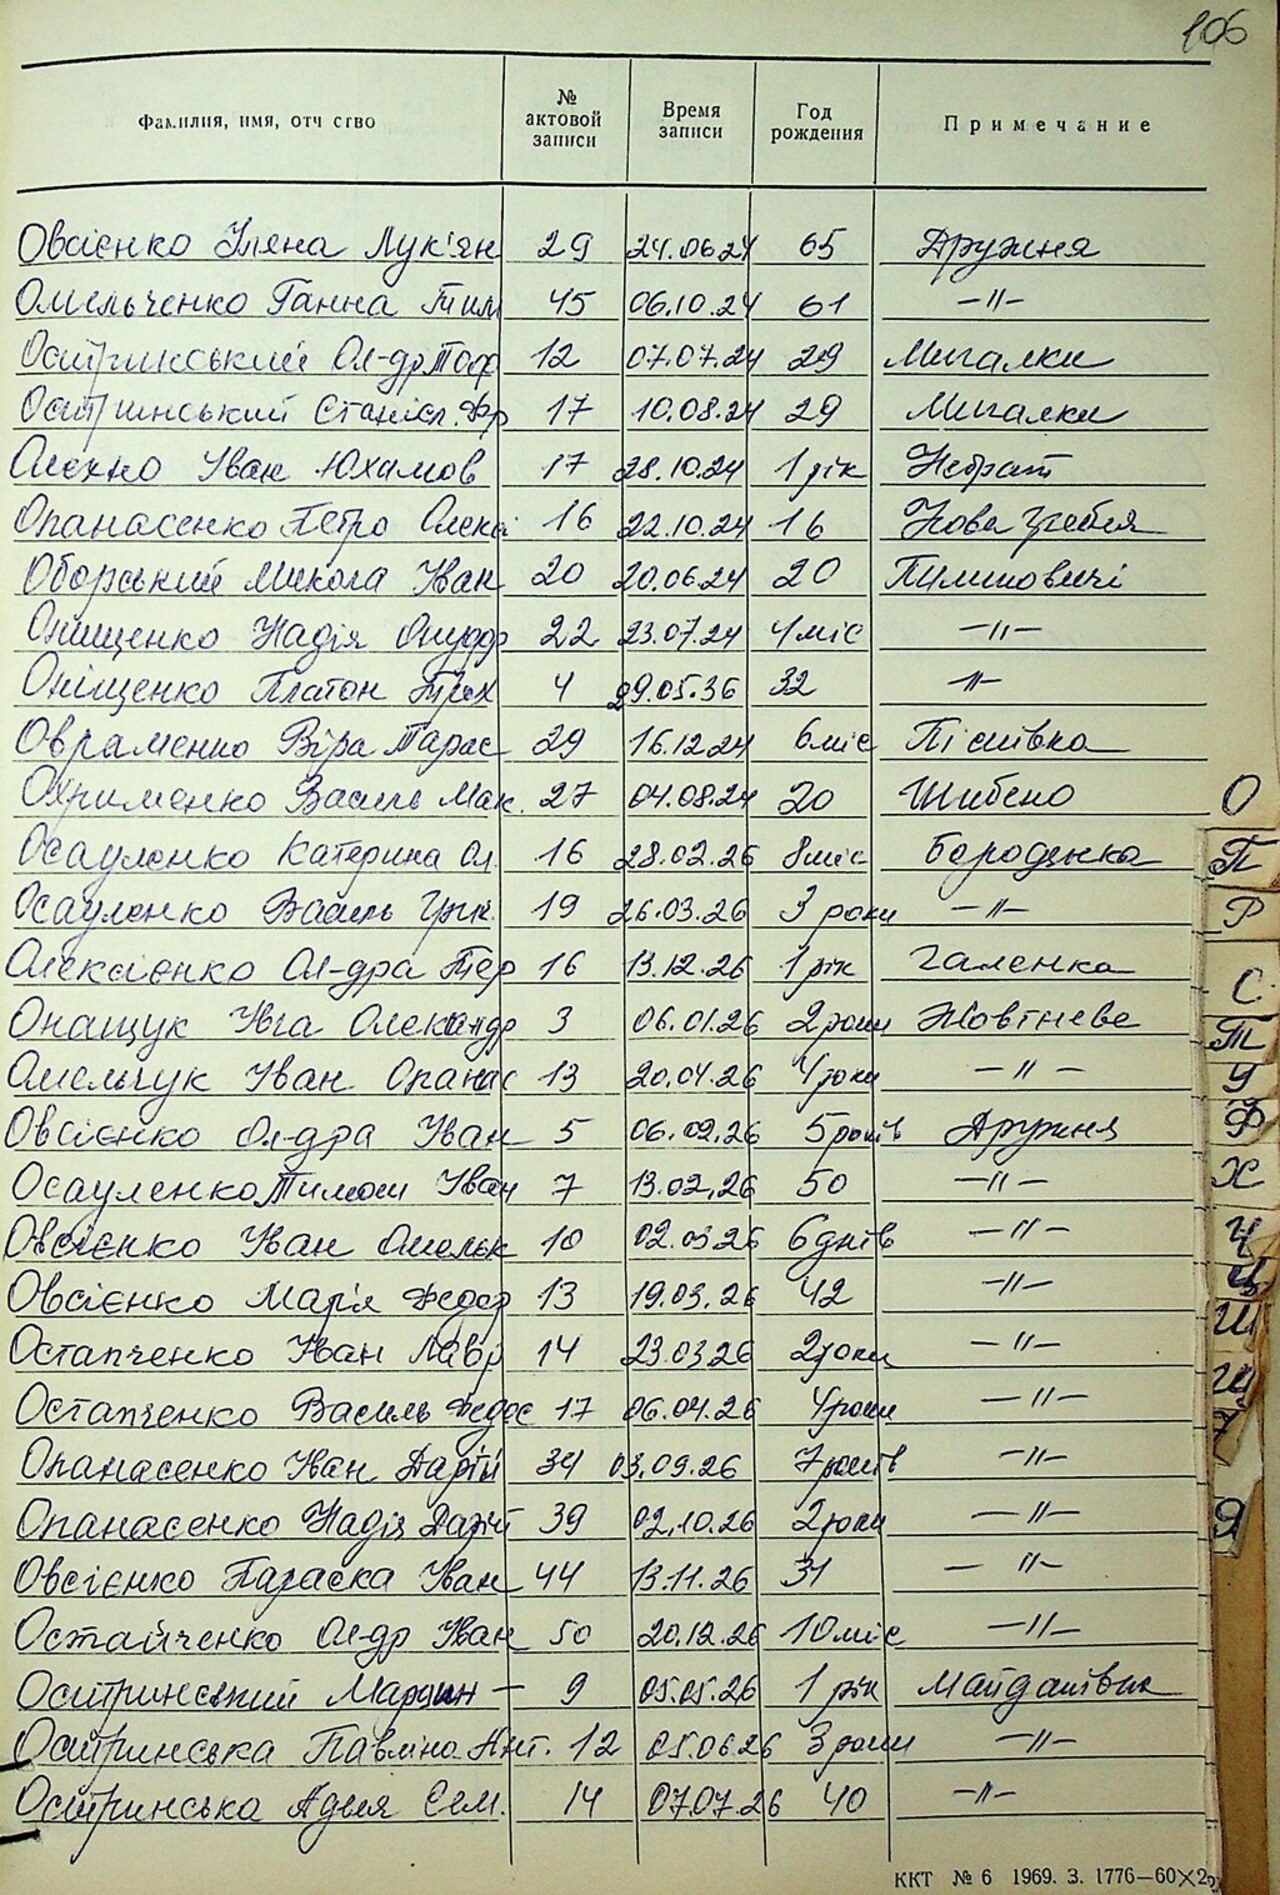 106
Фамилия, имя, отчество № актовой записи Время записи Год рождения Примечание
Овсієнко Уляна Лук'ян 29 24.06.24 65 Дружня
Омельченко Ганна Тим 45 06.10.24 61 —"—
Остринський Ол-др Тоф 12 07.07.24 29 Мигалки
Остринський Станісл. Фр 17 10.08.24 29 Мигалки
Олєхно Іван Юхимов 17 28.10.24 1 рік Небрат
Опанасенко Петро Олекс 16 22.10.24 16 Нова Гребля
Оборський Микола Іван 20 20.06.24 20 Пилиповичі
Онищенко Надія Онуфр 22 23.07.24 4 міс —"—
Оніщенко Платон Трох 4 29.05.36 32 —"—
Овраменко Віра Тарас 29 16.12.24 6 міс Пісківка
Охрименко Василь Мак. 27 04.08.24 20 Шибено
Осауленко Катерина Ол. 16 28.02.26 8 міс Бородянка
Осауленко Василь Григ. 19 26.03.26 3 роки —"—
Олексієнко Ол-дра Тер 16 13.12.26 1 рік Галенка
Онащук Ївга Олександр 3 06.01.26 2 роки Жовтневе
Омельчук Іван Опанас 13 20.04.26 4 роки —"—
Овсієнко Ол-дра Іван 5 06.02.26 5 років Дружня
Осауленко Тимош Іван 7 13.02.26 50 —"—
Овсієнко Іван Омельк 10 02.03.26 6 днів —"—
Овсієнко Мар'я Федор 13 19.03.26 42 —"—
Остапченко Іван Лавр 14 23.03.26 2 роки —"—
Остапченко Василь Федос 17 06.04.26 4 роки —"—
Опанасенко Іван Дартій 34 03.09.26 7 років —"—
Опанасенко Надія Дарій 39 02.10.26 2 роки —"—
Овсієнко Параска Іван 44 13.11.26 31 —"—
Остапченко Ол-др Іван 50 20.12.26 10 міс —"—
Остринський Марцин — 9 05.05.26 1 рік Майданівка
Остринська Павліна Ант. 12 05.06.26 3 роки —"—
Остринська Аделя Сем. 14 07.07.26 40 —"—
О
П
Р
С
Т
У
Ф
Х
Ч
Ц
Ш
Щ
Я
ККТ № 6 1969. З. 1776—60×2